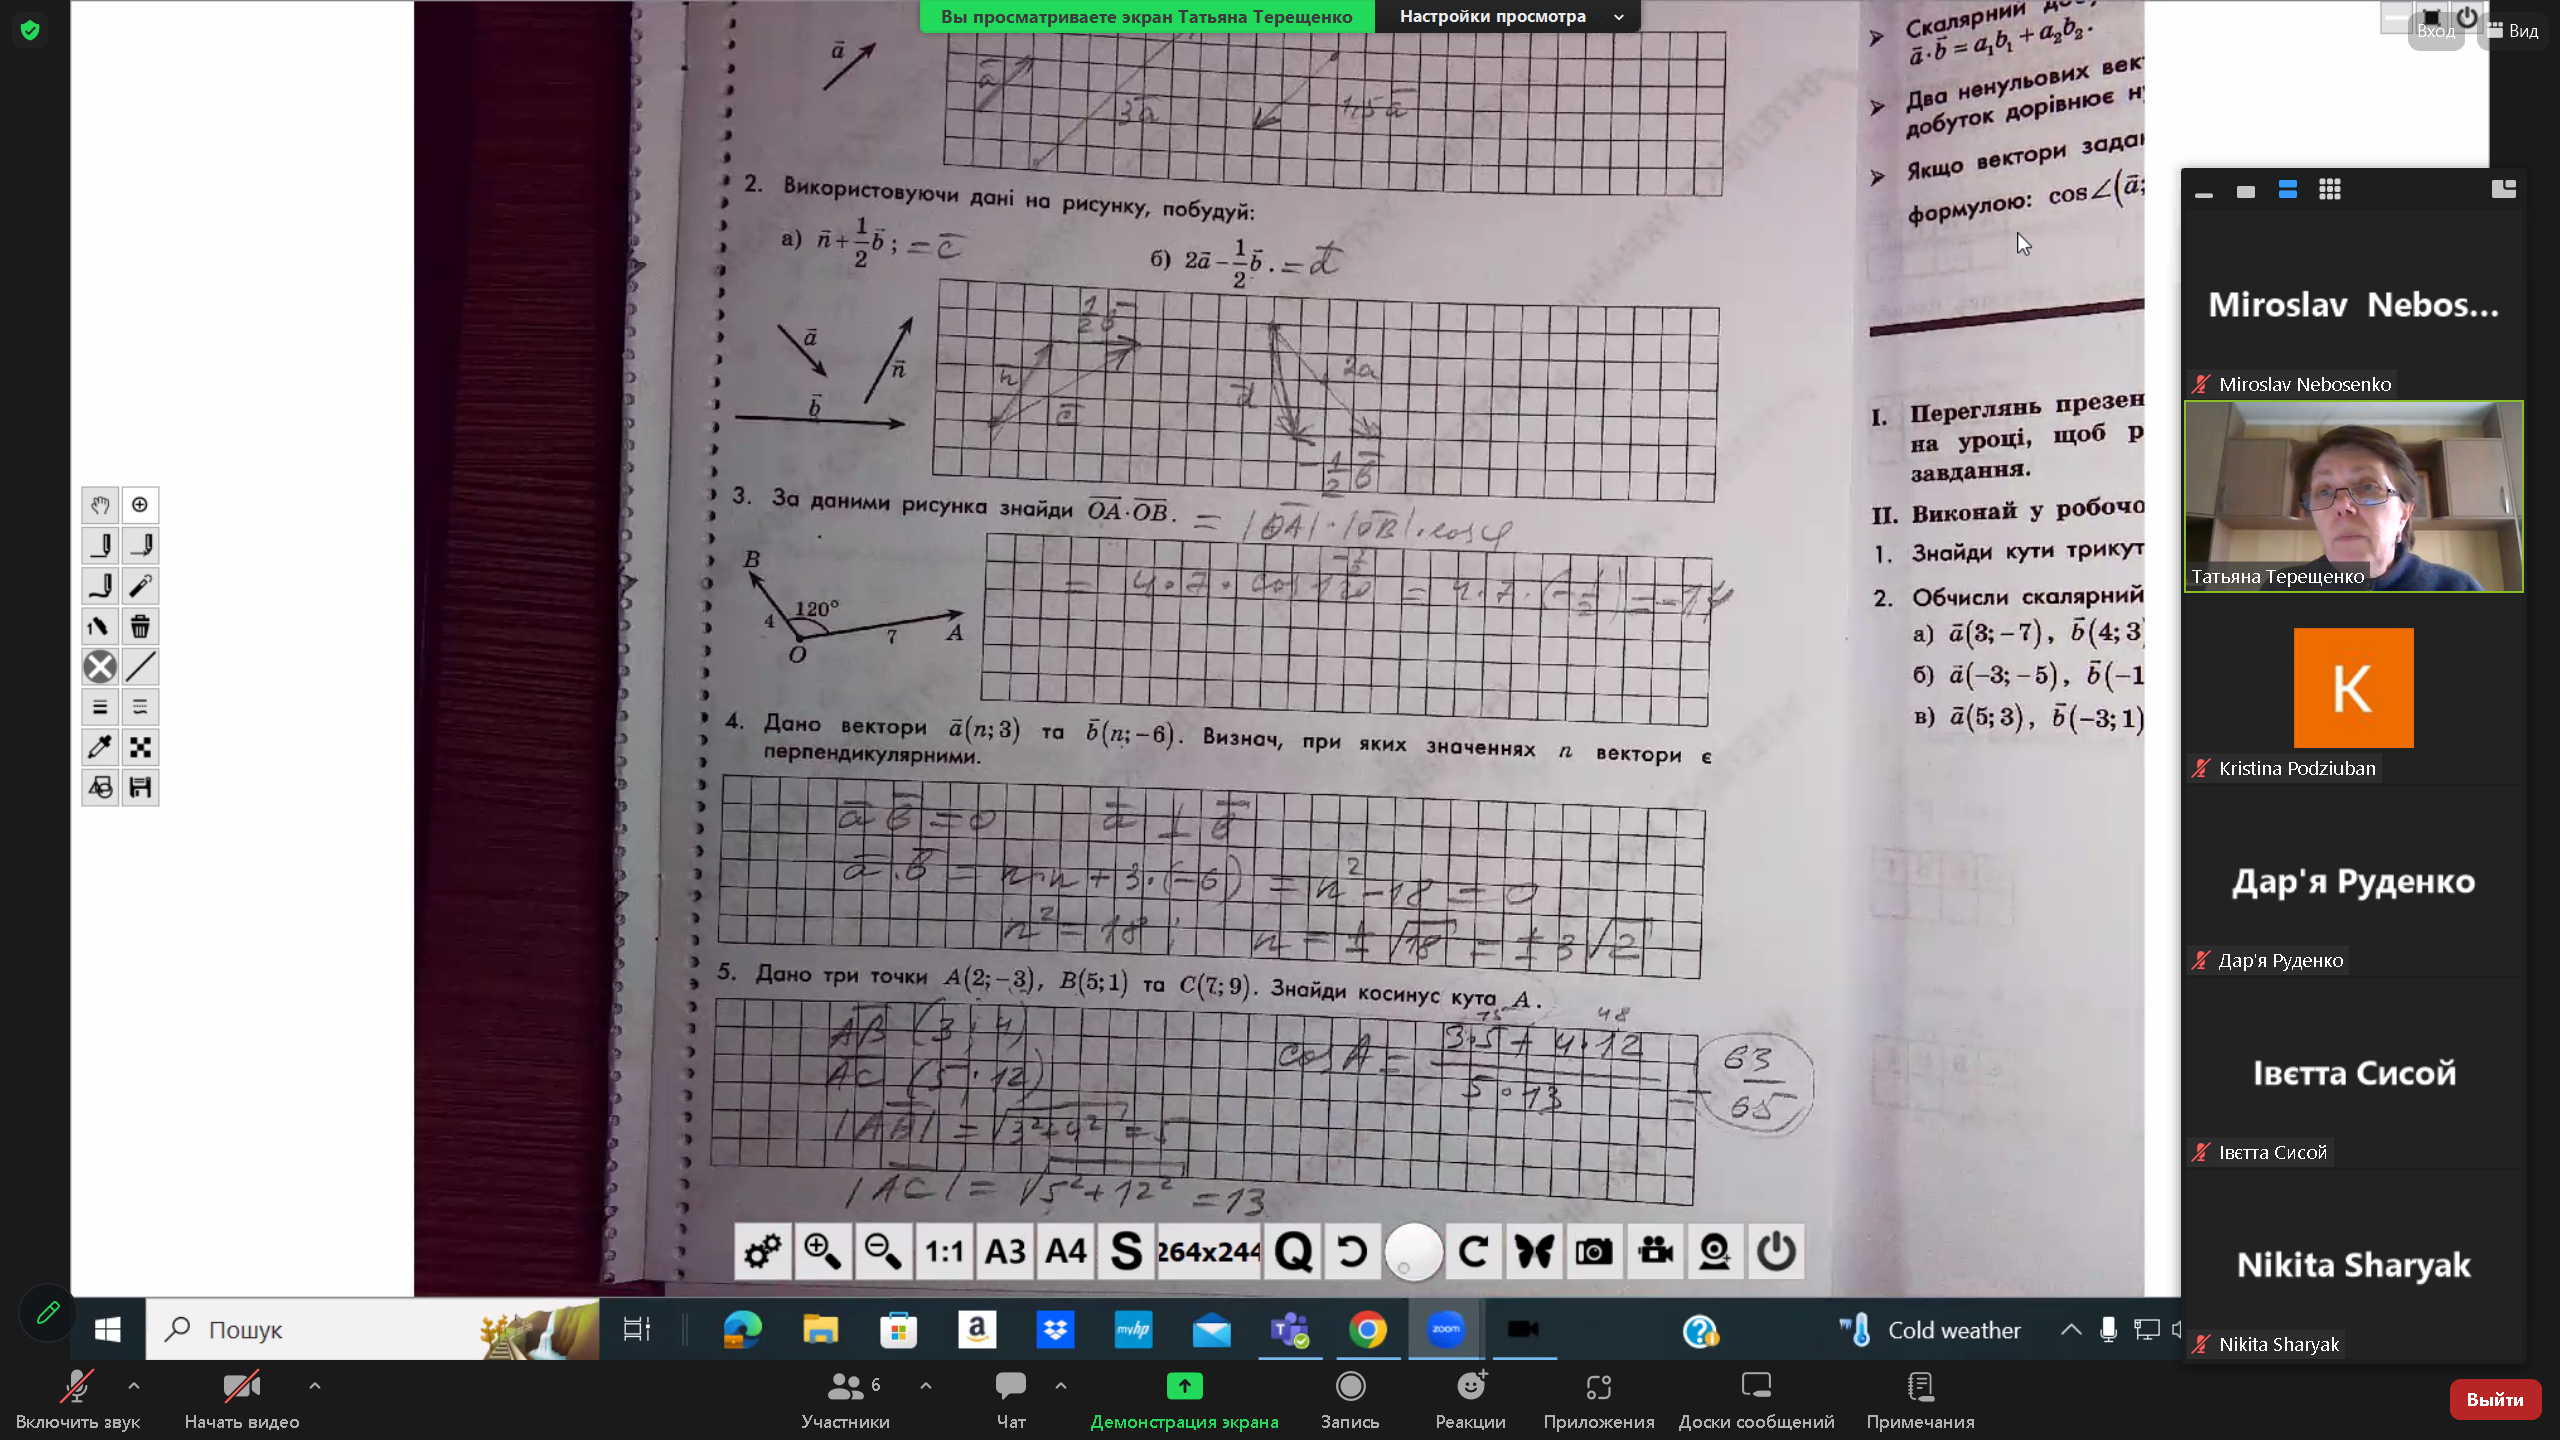 Вы просматриваете экран Татьяна Терещенко
Настройки просмотра
Вход
Вид
a̅
a̅
3a̅
1,5a̅
2. Використовуючи дані на рисунку, побудуй:
а) n̅ + 1/2 b̅ ; = c̅
б) 2a̅ − 1/2 b̅ . = d̅
a̅
n̅
b̅
1/2 b̅
n̅
c̅
2a
d̅
− 1/2 b̅
3. За даними рисунка знайди OA · OB . = |OA| · |OB| · cos φ
B
120°
4
7
A
O
= 4 · 7 · cos 120 = 4 · 7 · (− 1/2) = −14
4. Дано вектори a̅(n; 3) та b̅(n; −6). Визнач, при яких значеннях n вектори є
перпендикулярними.
a̅ b̅ = 0 a̅ ⊥ b̅
a̅ · b̅ = n · n + 3 · (−6) = n² − 18 = 0
n² = 18 ; n = ± √18 = ± 3√2
5. Дано три точки A(2; −3), B(5; 1) та C(7; 9). Знайди косинус кута A.
AB (3 ; 4)
AC (5 ; 12)
|AB| = √3² + 4² = 5
|AC| = √5² + 12² = 13
15 48
cos A = 3·5 + 4·12 / 5 · 13 = 63/65
Скалярний
a̅ · b̅ = a₁b₁ + a₂b₂.
Два ненульових век
добуток дорівнює н
Якщо вектори задан
формулою: cos∠(a̅;
I. Переглянь презен
на уроці, щоб р
завдання.
II. Виконай у робочо
1. Знайди кути трикут
2. Обчисли скалярний
а) a̅(3; −7), b̅(4; 3)
б) a̅(−3; −5), b̅(−1
в) a̅(5; 3), b̅(−3; 1)
Miroslav Nebos...
Miroslav Nebosenko
Татьяна Терещенко
K
Kristina Podziuban
Дар'я Руденко
Дар'я Руденко
Іветта Сисой
Іветта Сисой
Nikita Sharyak
Nikita Sharyak
1:1
A3
A4
S
264x244
Q
Пошук
a
myhp
zoom
Cold weather
Включить звук
Начать видео
Участники
6
Чат
Демонстрация экрана
Запись
Реакции
Приложения
Доски сообщений
Примечания
Выйти